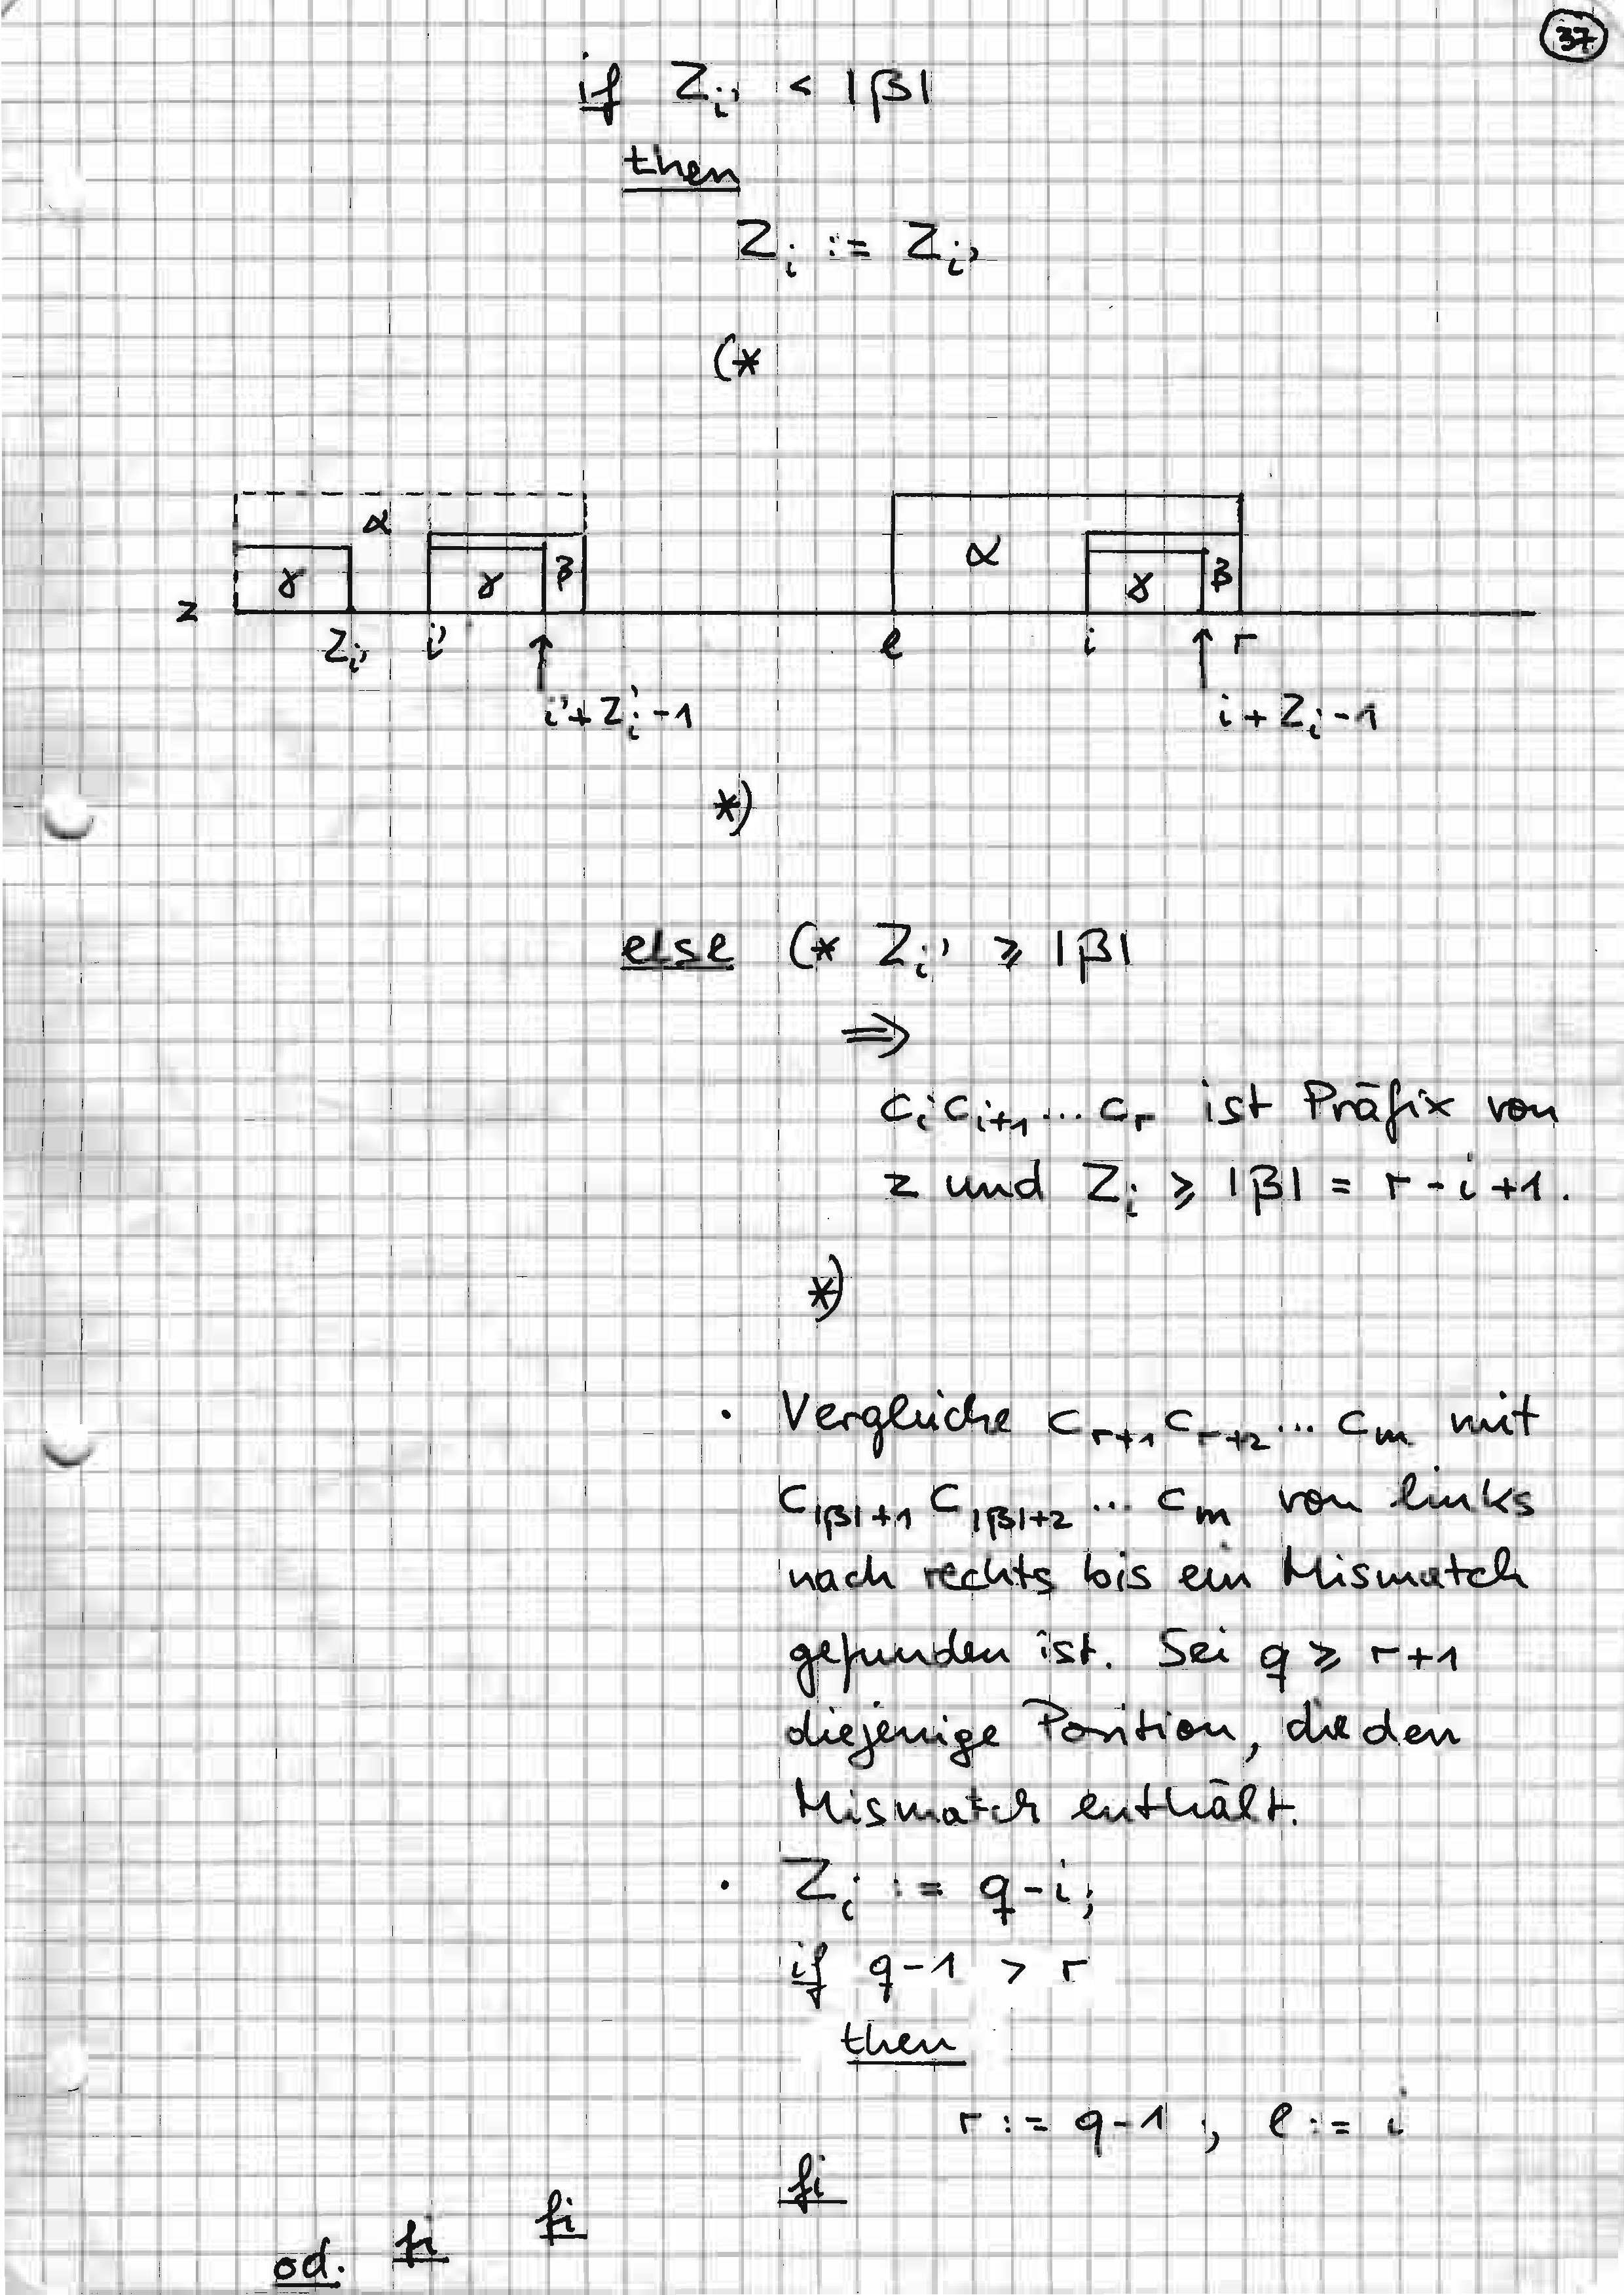 37
if Z_i' < |β|
then
Z_i := Z_i'
(*
α
γ γ β
α
γ β
z
Z_i' i' ↑ l i ↑ r
i'+Z_i'-1 i+Z_i-1
*)
else (* Z_i' ≥ |β|
⇒
c_i c_{i+1} ... c_r ist Präfix von
z und Z_i ≥ |β| = r-i+1.
*)
· Vergleiche c_{r+1} c_{r+2} ... c_m mit
c_{|β|+1} c_{|β|+2} ... c_m von links
nach rechts bis ein Mismatch
gefunden ist. Sei q ≥ r+1
diejenige Position, die den
Mismatch enthält.
· Z_i := q-i;
if q-1 > r
then
r := q-1 ; l := i
fi
fi
fi
od.